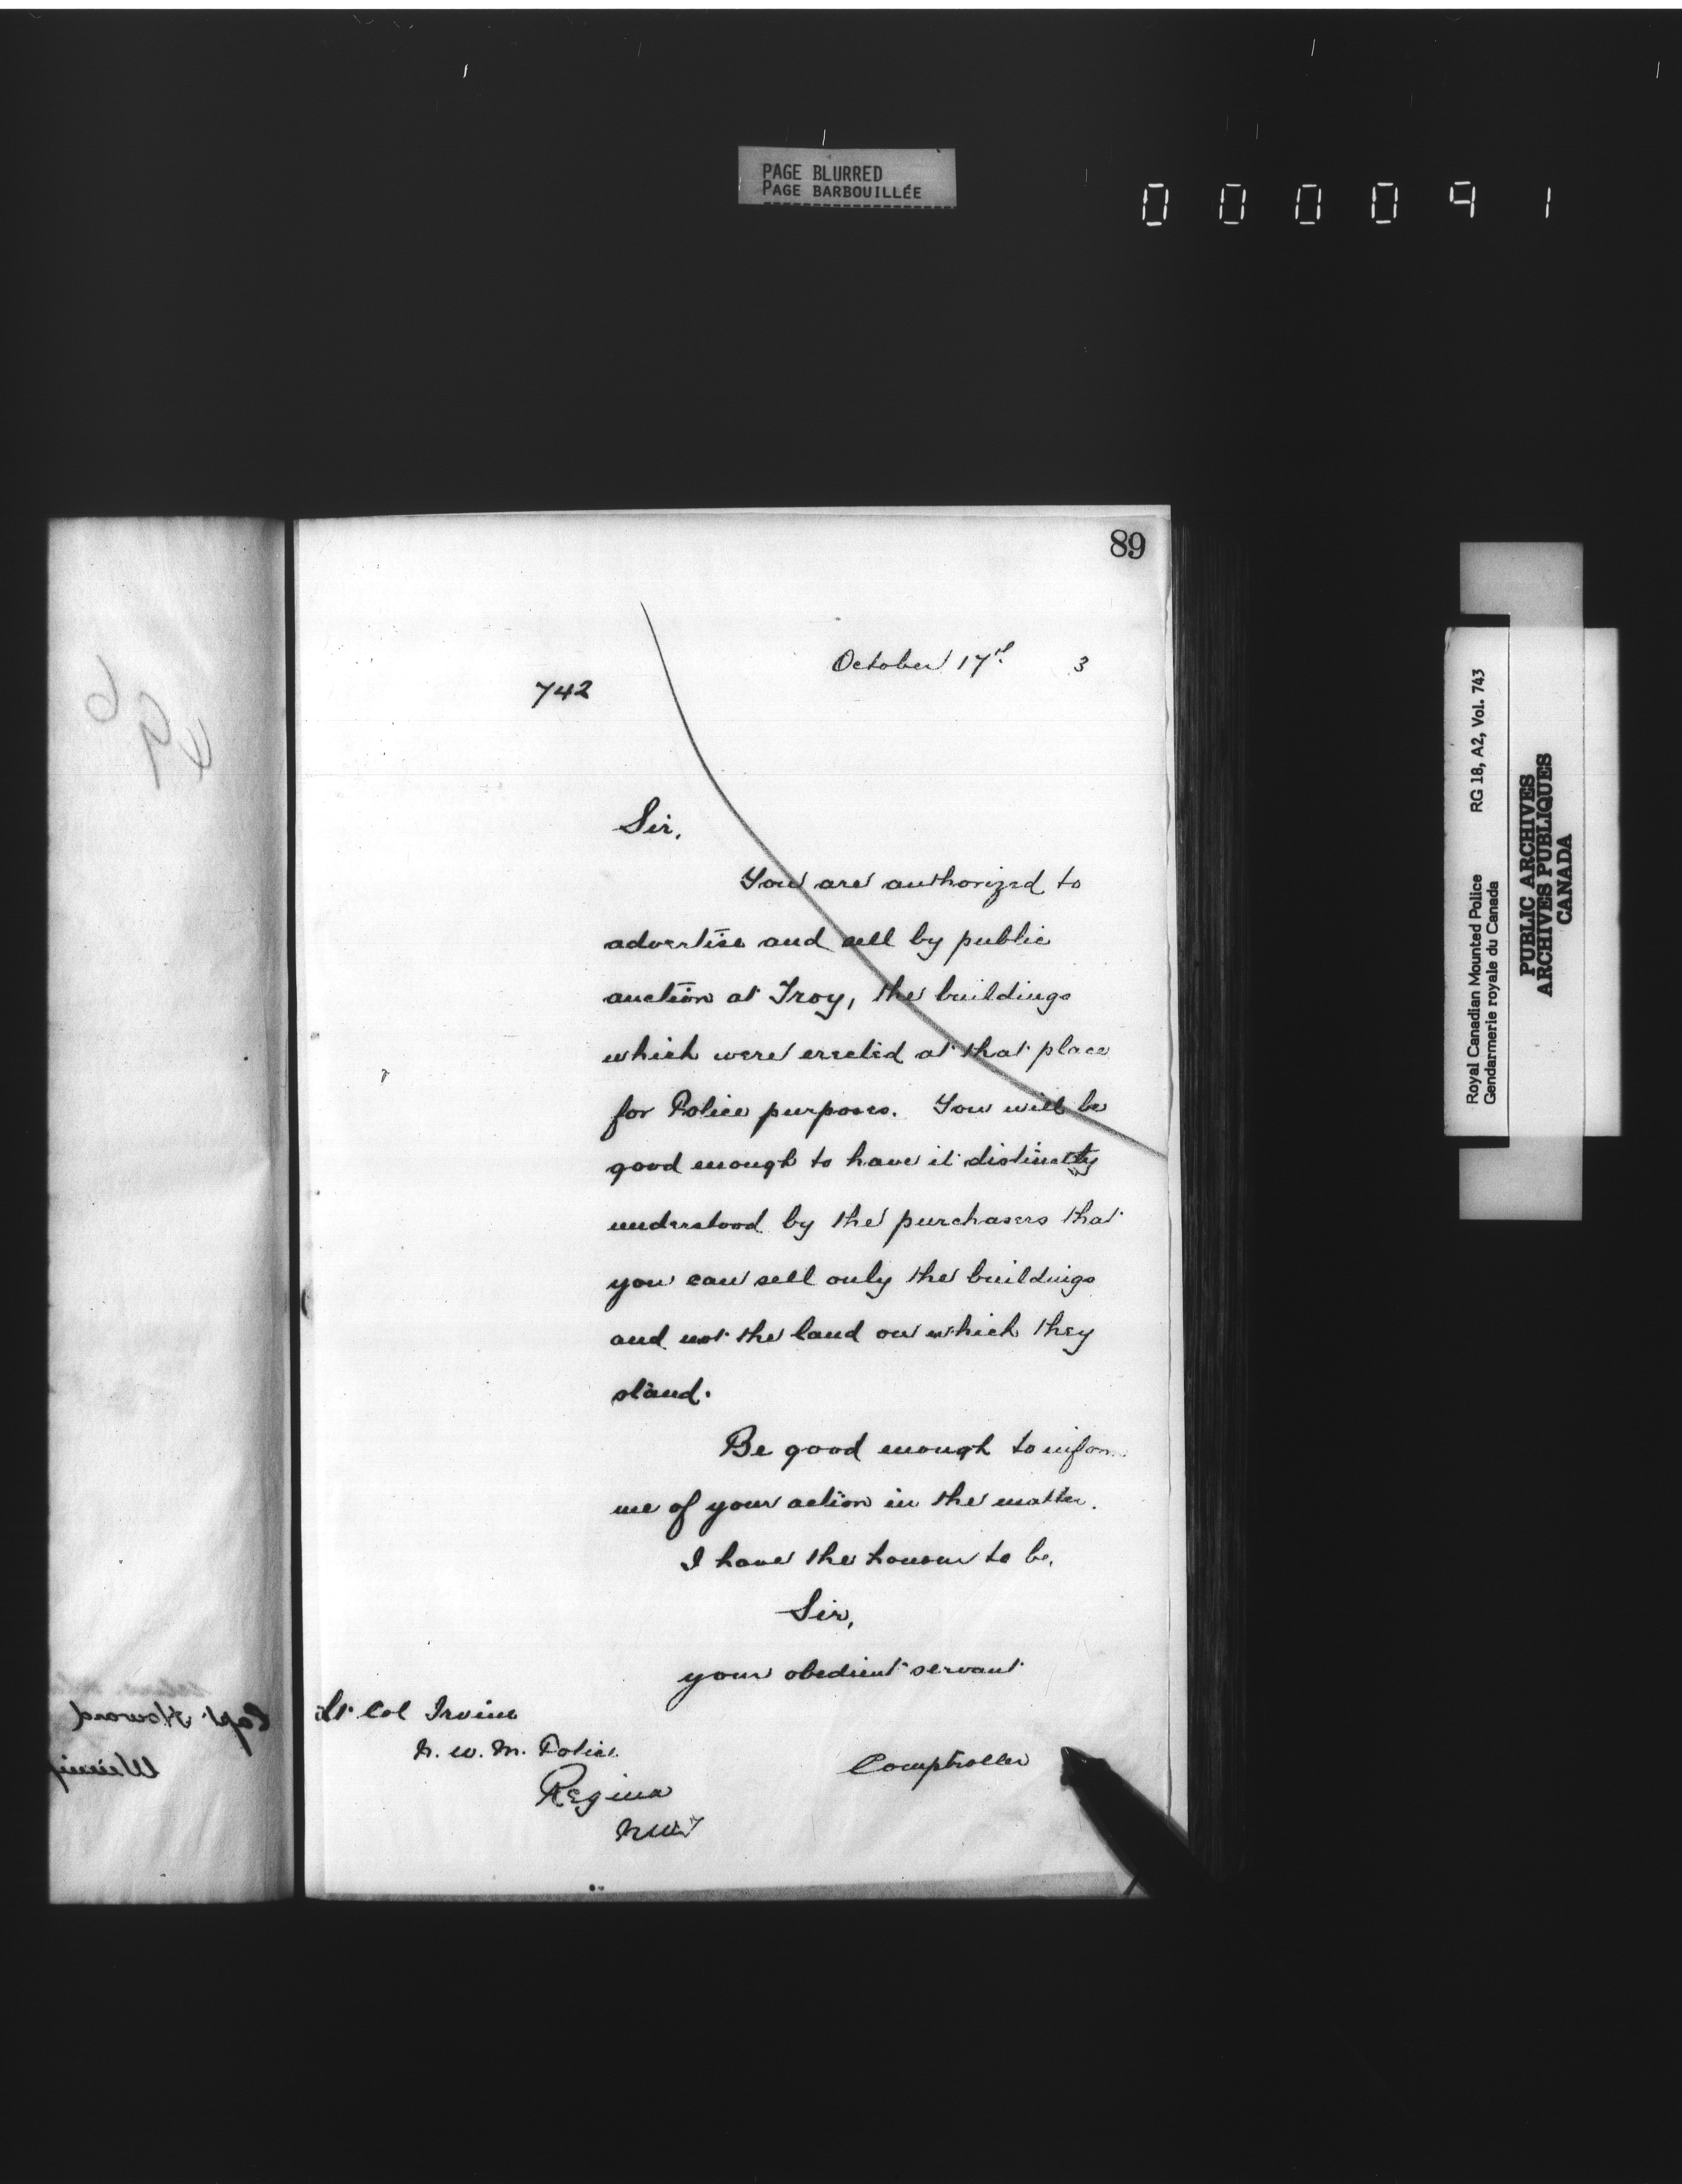 PAGE BLURRED
PAGE BARBOUILLÉE
000091
89
October 17th 3
742
Sir,
You are authorized to
advertise and sell by public
auction at Troy, the buildings
which were erected at that place
for Police purposes. You will be
good enough to have it distinctly
understood by the purchasers that
you can sell only the buildings
and not the land on which they
stand.
Be good enough to inform
me of your action in the matter.
I have the honour to be,
Sir,
your obedient servant
Lt Col Irvine
N. W. M. Police
Regina
NWT
Comptroller
Capt. Howard
Royal Canadian Mounted Police RG 18, A2, Vol. 743
Gendarmerie royale du Canada
PUBLIC ARCHIVES
ARCHIVES PUBLIQUES
CANADA